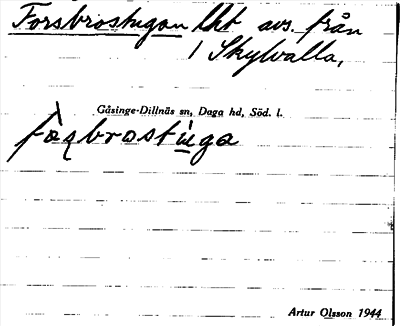 Forsbrostugan lht avs. från
1 Skylvalla.
Gåsinge-Dillnäs sn, Daga hd, Söd. l.
fòs̩brostùga
Artur Olsson 1944